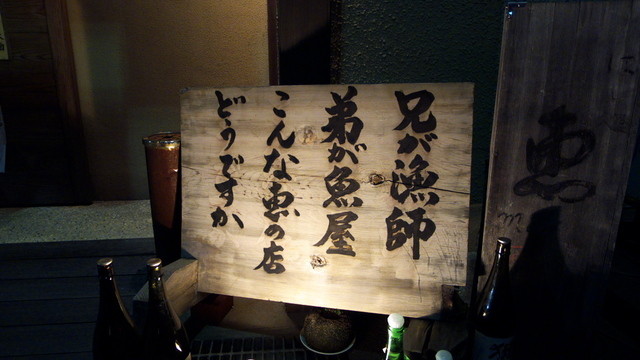 兄が漁師
弟が魚屋
こんな恵の店
どうですか
恵